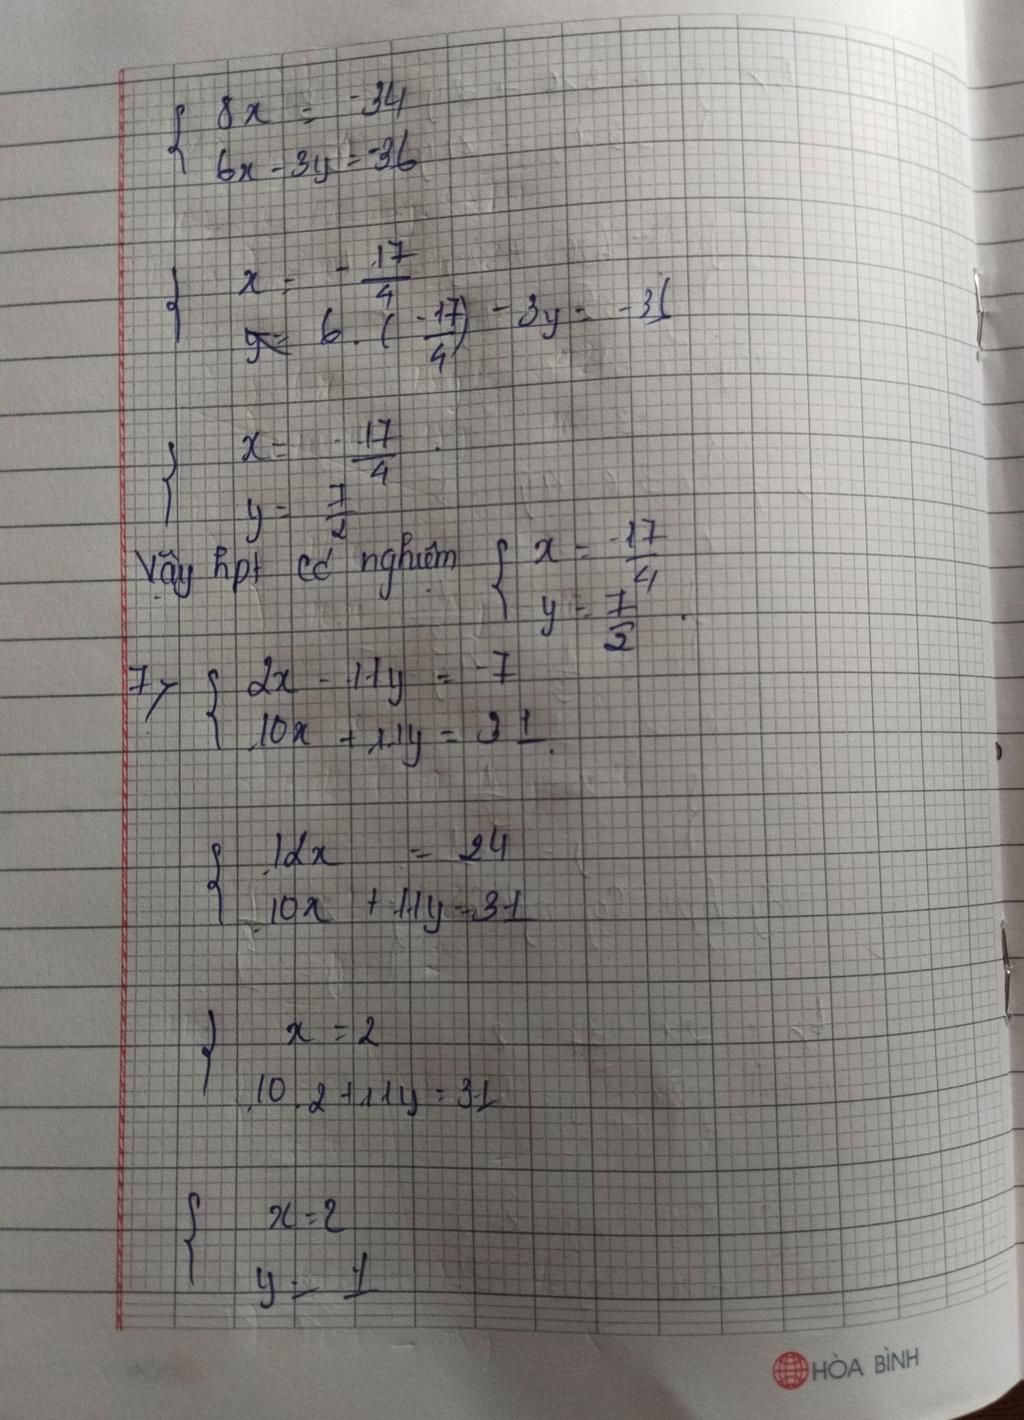 { 8x = -34
6x - 3y = -36
{ x = - 17/4
6 . (-17/4) - 3y = -36
{ x = - 17/4
y = 7/2
Vậy hpt có nghiệm { x = -17/4
y = 7/2 .
7, { 2x - 11y = -7
10x + 11y = 31
{ 12x = 24
10x + 11y = 31
{ x = 2
10 . 2 + 11y = 31
{ x = 2
y = 1
HÒA BÌNH